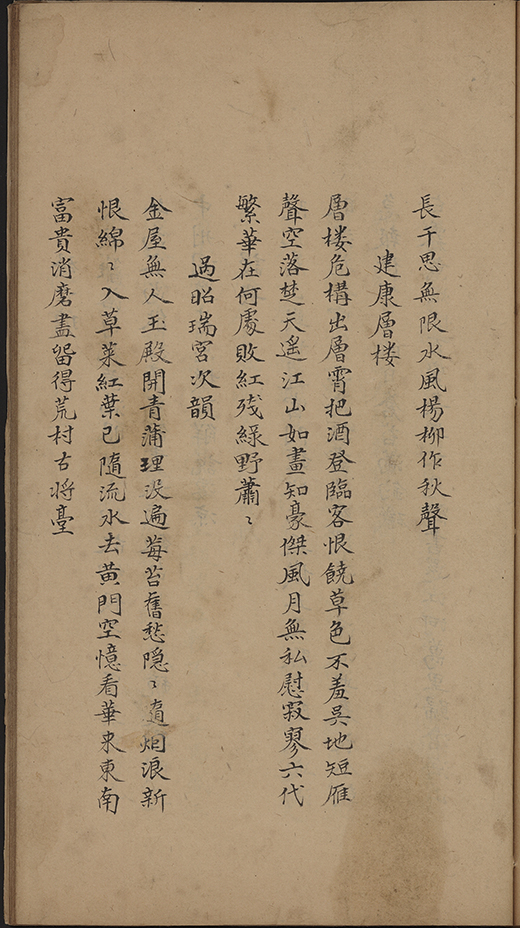 長干思無限水風楊柳作秋聲
建康層楼
層楼危構出層霄把酒登臨客恨饒草色不羞吳地短雁
聲空落楚天遙江山如畫知豪傑風月無私慰寂寥六代
繁華在何處敗紅残綠野蕭〻
過昭瑞宮次韻
金屋無人玉殿開青蒲理没遍莓苔舊愁隠〻随烟浪新
恨綿〻入草萊紅葉已隨流水去黄門空憶看華来東南
富貴消磨盡畱得荒村古将臺